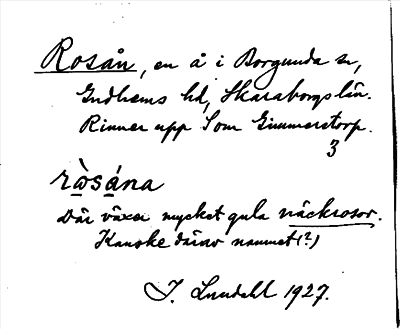 Rosån, en å i Borgunda sn,
Gudhems hd, Skaraborgs län.
Rinner upp i om Gimmerstorp.
3
ràsána
Där växer mycket gula näckrosor.
Kanske därav namnet (?)
J. Lundahl 1927.